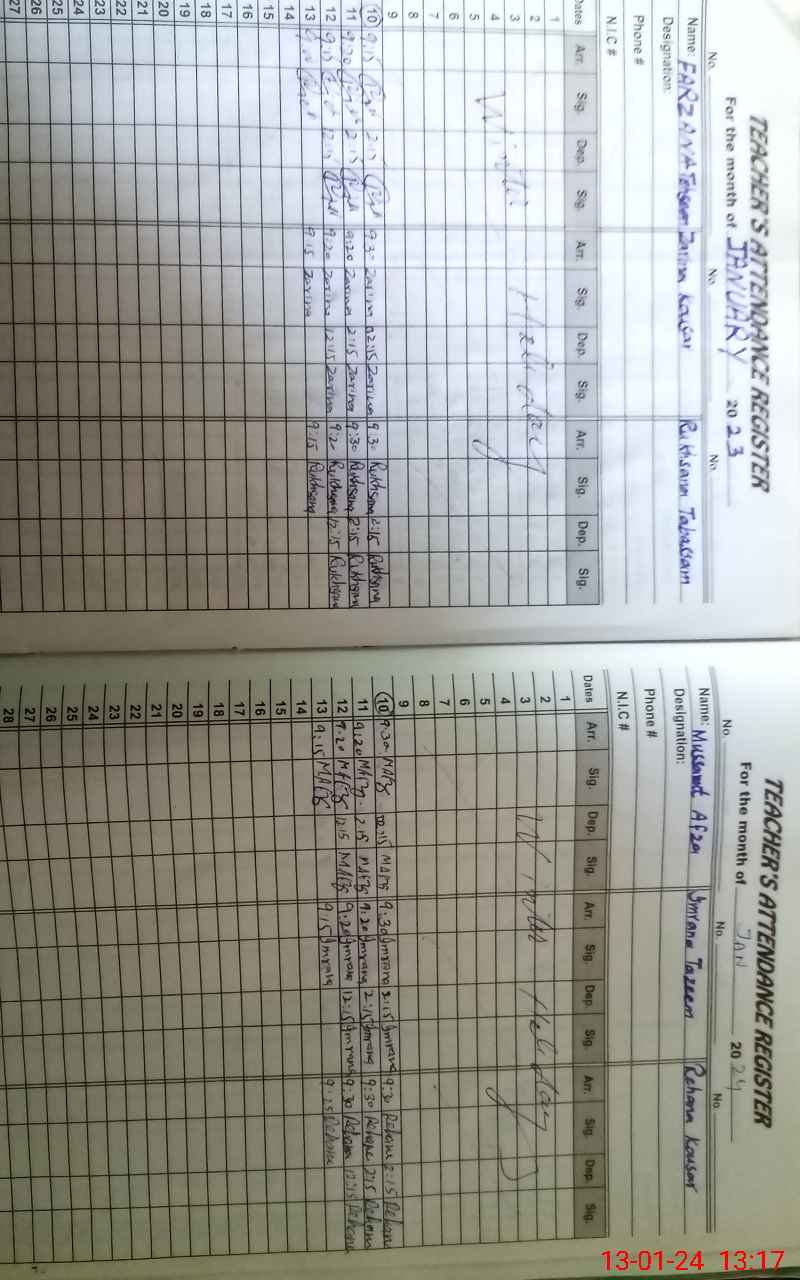 TEACHER'S ATTENDANCE REGISTER
For the month of JANUARY 2023
No. No. No.
Name: FARZANA Tehseen Zarina Kousar Rukhsana Tabassam
Designation:
Phone #
N.I.C #
Dates Arr. Sig. Dep. Sig. Arr. Sig. Dep. Sig. Arr. Sig. Dep. Sig.
1
2
3
4
5
6
7
8
9
Winter Holiday
10 9:15 2:15 9:30 Zarina 2:15 Zarina 9:30 Rukhsana 2:15 Rukhsana
11 9:20 2:15 9:20 Zarina 2:15 Zarina 9:30 Rukhsana 2:15 Rukhsana
12 9:15 12:15 9:20 Zarina 12:15 Zarina 9:20 Rukhsana 12:15 Rukhsana
13 9:15 Zarina 9:15 Rukhsana
14
15
16
17
18
19
20
21
22
23
24
25
26
27
TEACHER'S ATTENDANCE REGISTER
For the month of JAN 2024
No. No. No.
Name: Mussarat Afza Imrana Tazeem Rehana Kousar
Designation:
Phone #
N.I.C #
Dates Arr. Sig. Dep. Sig. Arr. Sig. Dep. Sig. Arr. Sig. Dep. Sig.
1
2
3
4
5
6
7
8
9
Winter Holiday
10 9:30 MAfza 2:15 MAfza 9:30 Imrana 2:15 Imrana 9:30 Rehana 2:15 Rehana
11 9:20 MAfza 2:15 MAfza 9:20 Imrana 2:15 Imrana 9:30 Rehana 2:15 Rehana
12 9:20 MAfza 12:15 MAfza 9:20 Imrana 12:15 Imrana 9:30 Rehana 12:15 Rehana
13 9:15 MAfza 9:15 Imrana 9:15 Rehana
14
15
16
17
18
19
20
21
22
23
24
25
26
27
28
13-01-24 13:17